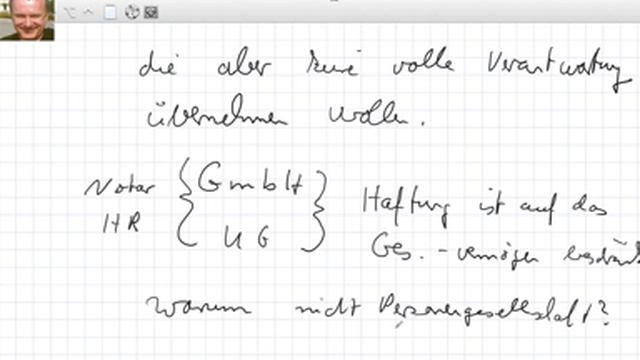 die aber keine volle Verantwortung
übernehmen wollen.
Notar { GmbH } Haftung ist auf das
HR { UG } Ges.-vermögen beschränk
warum nicht Personengesellschaft?